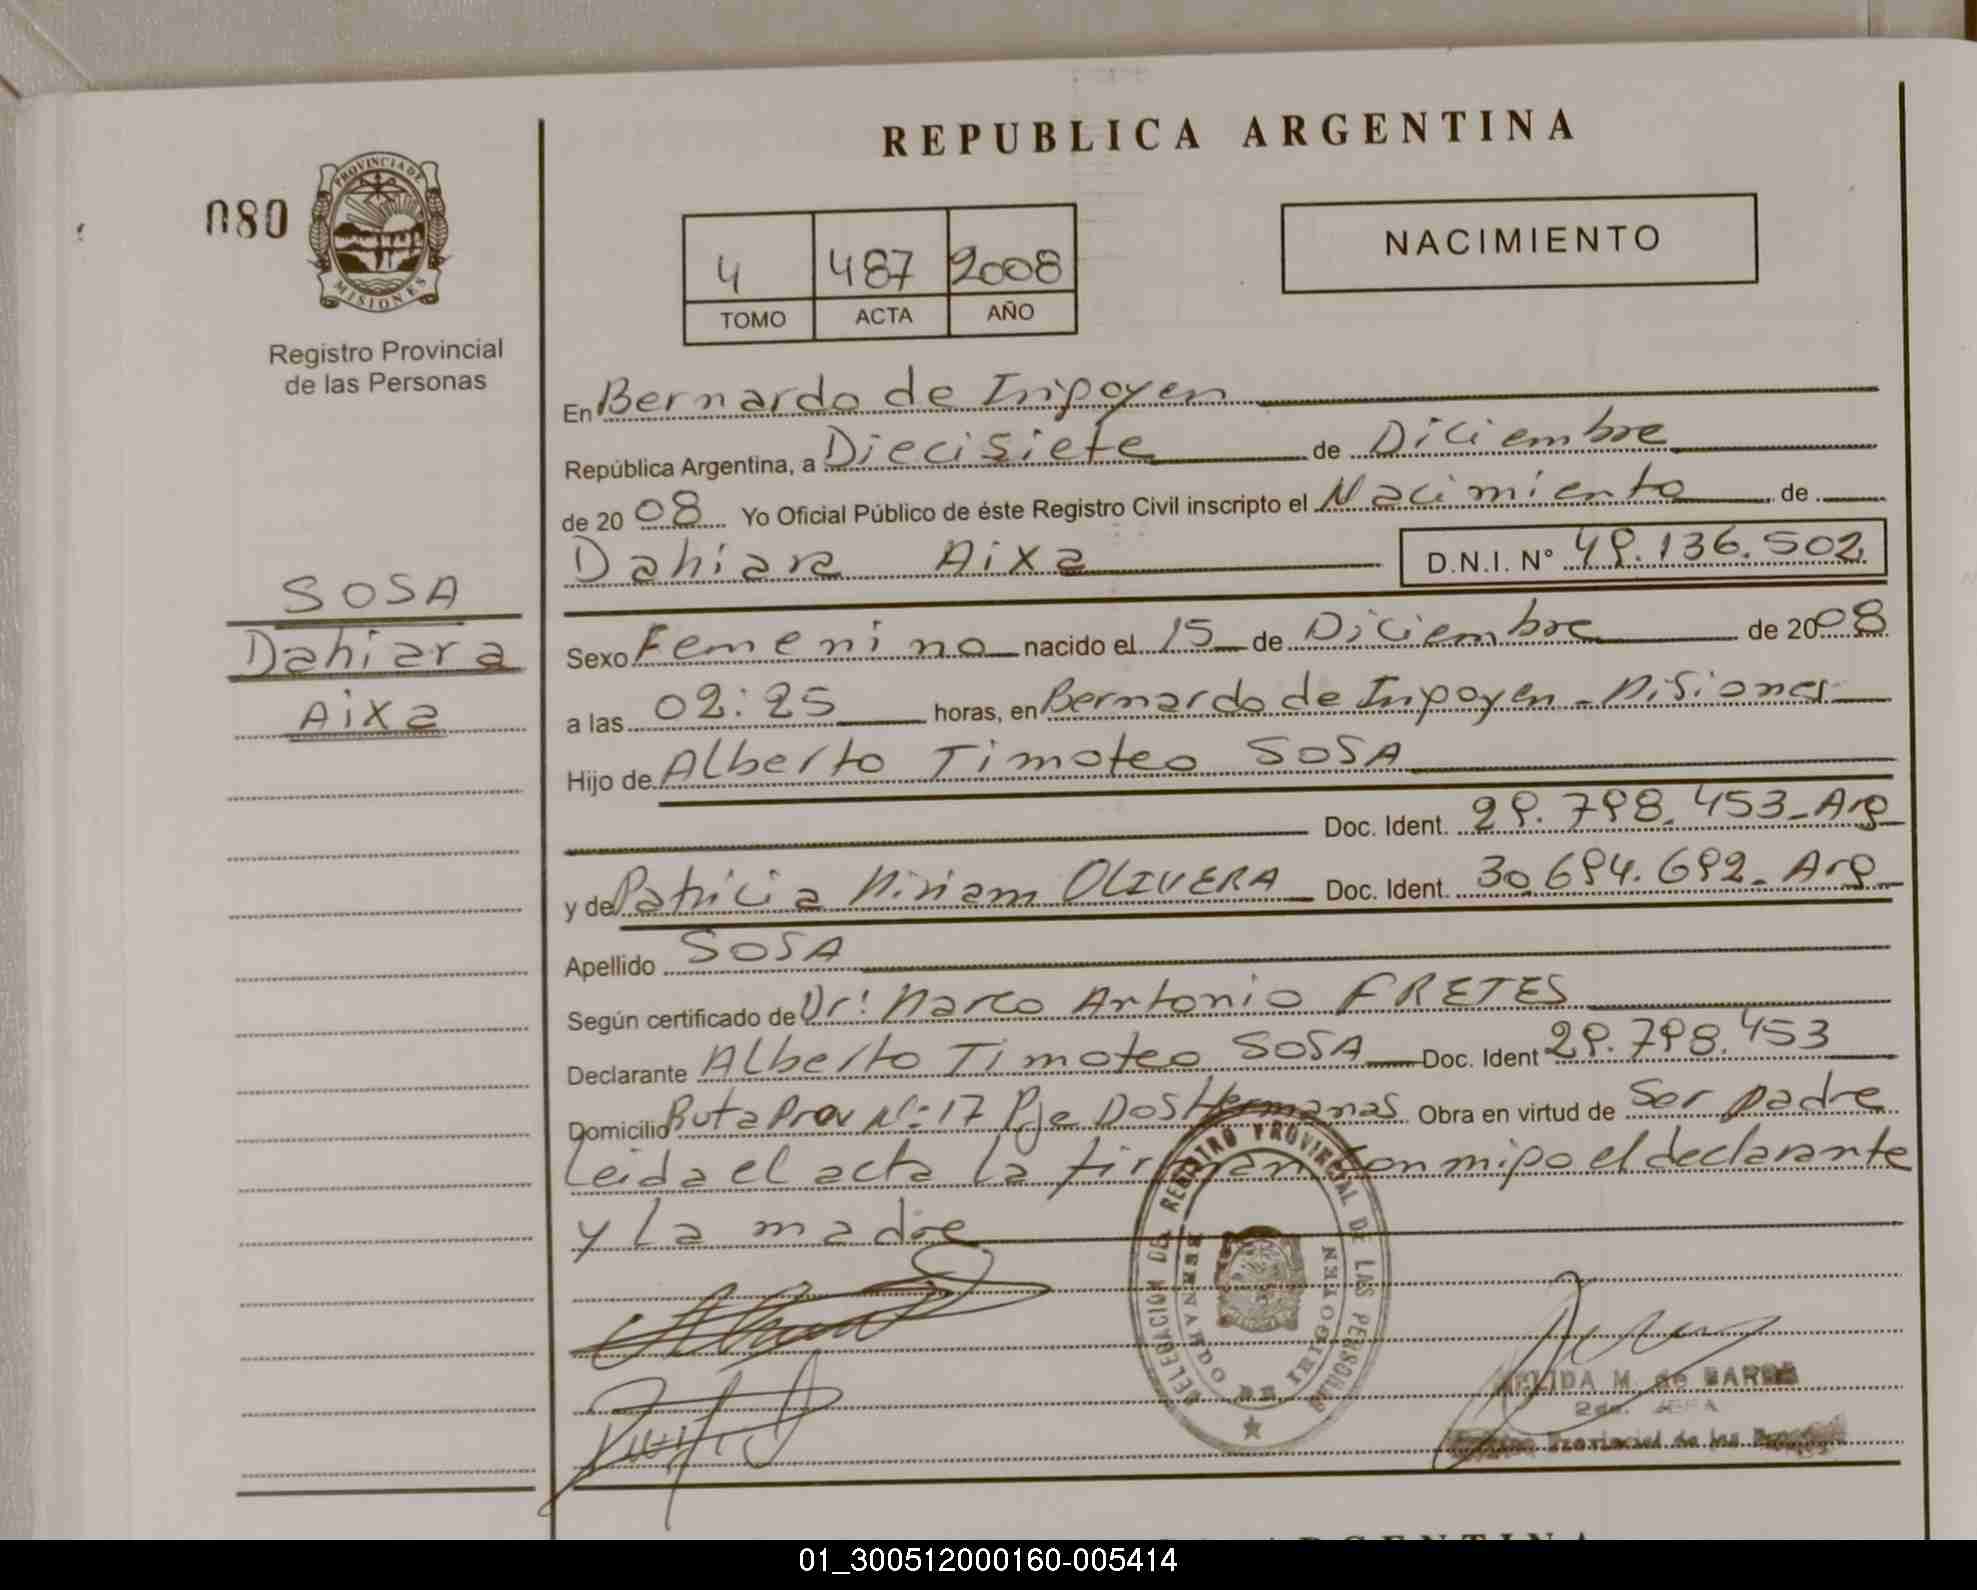 REPUBLICA ARGENTINA
080
PROVINCIA DE
MISIONES
Registro Provincial
de las Personas
4 487 2008
TOMO ACTA AÑO
NACIMIENTO
En Bernardo de Irigoyen
República Argentina, a Diecisiete de Diciembre
de 2008 Yo Oficial Público de éste Registro Civil inscripto el Nacimiento de
Dahiara Aixa D.N.I. N° 49.136.502
SOSA
Dahiara
Aixa
Sexo Femenino nacido el 15 de Diciembre de 2008
a las 02:25 horas, en Bernardo de Irigoyen - Misiones
Hijo de Alberto Timoteo SOSA
Doc. Ident. 29.798.453 - Arg
y de Patricia Miriam OLIVERA Doc. Ident. 30.694.692 - Arg
Apellido SOSA
Según certificado de Dr: Marco Antonio FRETES
Declarante Alberto Timoteo SOSA Doc. Ident 29.798.453
Domicilio Ruta Prov N°: 17 Pje Dos Hermanas Obra en virtud de Ser padre
Leida el acta la firman conmigo el declarante
y la madre
DELEGACION DEL REGISTRO PROVINCIAL DE LAS PERSONAS
BERNARDO DE IRIGOYEN
M. de
2da. JEFA
Provincial de las
ARGENTINA
01_300512000160-005414